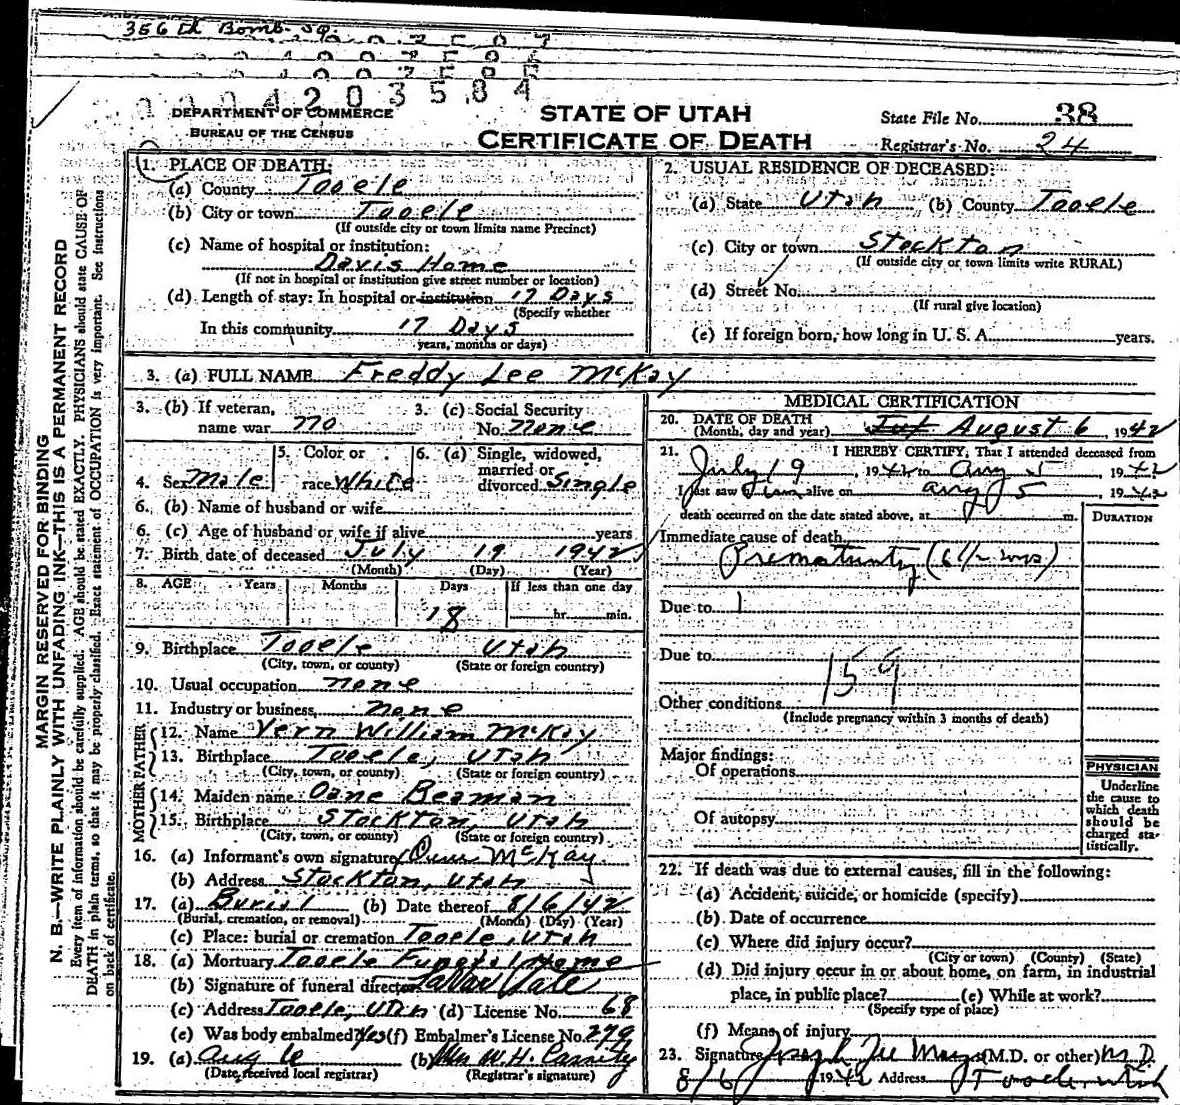 356 th Bomb. Sq.
0 0 0 4 2 0 3 5 8 4
DEPARTMENT OF COMMERCE
BUREAU OF THE CENSUS
STATE OF UTAH
CERTIFICATE OF DEATH
State File No. 38
Registrar's No. 24
MARGIN RESERVED FOR BINDING
N. B.—WRITE PLAINLY WITH UNFADING INK—THIS IS A PERMANENT RECORD
Every item of information should be carefully supplied. AGE should be stated EXACTLY. PHYSICIANS should state CAUSE OF
DEATH in plain terms, so that it may be properly classified. Exact statement of OCCUPATION is very important. See instructions
on back of certificate.
1. PLACE OF DEATH:
(a) County Tooele
(b) City or town Tooele
(If outside city or town limits name Precinct)
(c) Name of hospital or institution:
Davis Home
(If not in hospital or institution give street number or location)
(d) Length of stay: In hospital or institution 17 Days
(Specify whether
In this community 17 Days
years, months or days)
2. USUAL RESIDENCE OF DECEASED:
(a) State Utah (b) County Tooele
(c) City or town Stockton
(If outside city or town limits write RURAL)
(d) Street No.
(If rural give location)
(e) If foreign born, how long in U. S. A. years.
3. (a) FULL NAME Freddy Lee McKay
3. (b) If veteran, name war no
3. (c) Social Security No. none
4. Sex Male
5. Color or race White
6. (a) Single, widowed, married or divorced Single
6. (b) Name of husband or wife
6. (c) Age of husband or wife if alive years
7. Birth date of deceased July 19 1942
(Month) (Day) (Year)
8. AGE Years Months Days If less than one day
18 hr. min.
9. Birthplace Tooele Utah
(City, town, or county) (State or foreign country)
10. Usual occupation none
11. Industry or business none
FATHER
12. Name Vern William McKay
13. Birthplace Tooele, Utah
(City, town, or county) (State or foreign country)
MOTHER
14. Maiden name Oane Beaman
15. Birthplace Stockton, Utah
(City, town, or county) (State or foreign country)
16. (a) Informant's own signature McKay
(b) Address Stockton, Utah
17. (a) Burial (b) Date thereof 8/6/42
(Burial, cremation, or removal) (Month) (Day) (Year)
(c) Place: burial or cremation Tooele, Utah
18. (a) Mortuary Tooele Funeral Home
(b) Signature of funeral director
(c) Address Tooele, Utah (d) License No. 68
(e) Was body embalmed? Yes (f) Embalmer's License No. 279
19. (a) Aug 6 (b) W.H. Cassity
(Date received local registrar) (Registrar's signature)
MEDICAL CERTIFICATION
20. DATE OF DEATH
(Month, day and year) August 6, 1942
21. I HEREBY CERTIFY, That I attended deceased from
July 19, 1942 to Aug 5 1942
I last saw him alive on Aug 5, 1942
death occurred on the date stated above, at m.
DURATION
Immediate cause of death
Prematurity (6 1/2 mos)
Due to
Due to
159
Other conditions
(Include pregnancy within 3 months of death)
Major findings:
Of operations
Of autopsy
PHYSICIAN
Underline
the cause to
which death
should be
charged sta-
tistically.
22. If death was due to external causes, fill in the following:
(a) Accident, suicide, or homicide (specify)
(b) Date of occurrence
(c) Where did injury occur?
(City or town) (County) (State)
(d) Did injury occur in or about home, on farm, in industrial
place, in public place? (e) While at work?
(Specify type of place)
(f) Means of injury
23. Signature Joseph Lee (M.D. or other) M.D.
8/6 1942 Address Tooele Utah